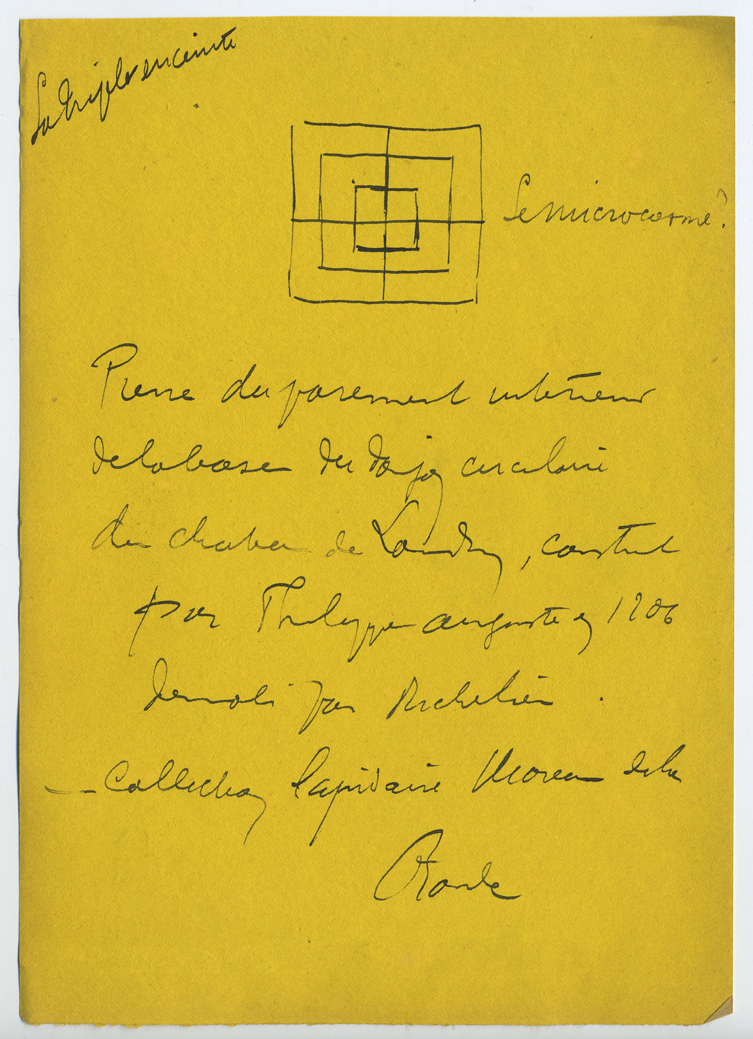 La triple enceinte
Le microcosme?
Pierre du parement intérieur
de la base du donjon circulaire
du chateau de Loudun, construit
par Philippe auguste en 1206
demoli par Richelieu.
— Collection lapidaire Moreau de la
Ronde